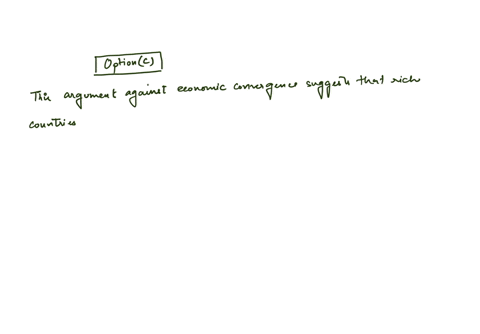 Option(C)
This argument against economic convergence suggests that rich
countries